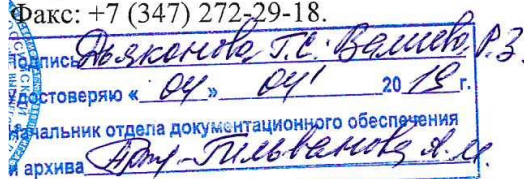 Факс: +7 (347) 272-29-18.
Подпись Дьяконова Т.С. Валиева Р.З.
Удостоверяю « 04 » 04 20 19 г.
Начальник отдела документационного обеспечения
и архива Гильванова А.М.